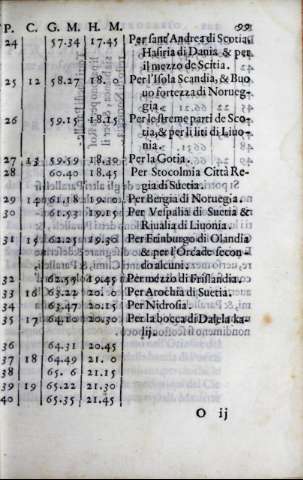 P. C. G. M. H. M. 99
24 57.34 17.45 Per sant'Andrea di Scotia.
Hafnia di Dania & per
il mezzo de Scitia.
25 12 58.27 18. 0 Per l'Isola Scandia, & Buo
uo fortezza di Norueg-
gia.
26 59.15 18.15 Per le streme parti de Sco-
tia, & per li liti di Liuo-
nia.
27 13 59.59 18.30 Per la Gotia.
28 60.40 18.45 Per Stocolmia Città Re-
gia di Suetia.
29 14 61.18 19. 0 Per Bergia di Noruegia.
30 61.53 19.15 Per Vespalia di Suetia &
Riualia di Liuonia.
31 15 62.25 19.30 Per Frinburgo di Olandia
& per l'Orcade secon-
do alcuni.
32 62.54 19.45 Per mezzo di Frislandia.
33 16 63.22 20. 0 Per Arochia di Suetia.
34 63.47 20.15 Per Nidrosia.
35 17 64.10 20.30 Per la bocca di Dalela ka-
lij.
36 64.31 20.45
37 18 64.49 21. 0
38 65. 6 21.15
39 19 65.22 21.30
40 65.35 21.45
O ij